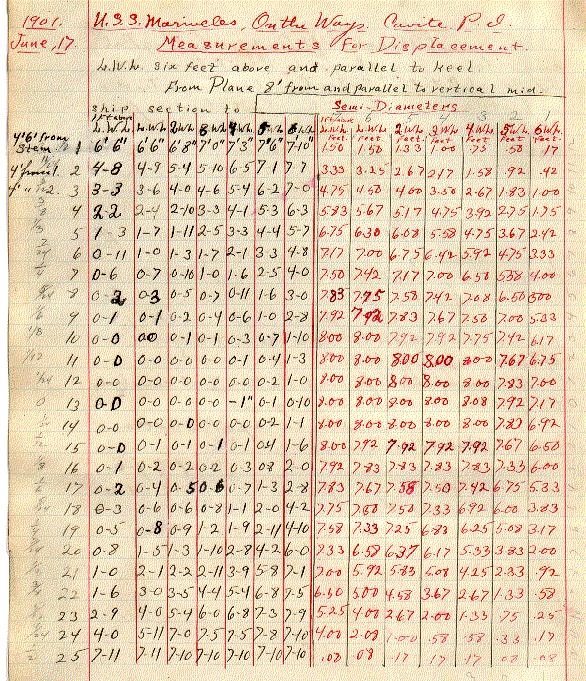 1901. U.S.S. Mariveles, On the Ways. Cavite P.I.
June, 17 Measurements for Displacement.
L.W.L. six feet above and parallel to keel.
From Plane 8' from and parallel to vertical mid.
ship section to Semi-Diameters
1 ft above 1 ft above
L.W.L. L.W.L. 2 W.L. 3 W.L. 4 W.L. 5 W.L. 6 W.L. L.W.L. L.W.L. 2 W.L. 3 W.L. 4 W.L. 5 W.L. 6 W.L.
feet. feet. feet. feet. feet. feet. feet.
4'6" from
Stem 1 6' 6" 6' 6" 6' 8" 7' 0" 7' 3" 7' 6" 7-10" 1.50 1.50 1.33 1.00 .75 .50 .17
2 4-8 4-9 5-4 5-10 6-5 7-1 7-7 3.33 3.25 2.67 2.17 1.58 .92 .42
3 3-3 3-6 4-0 4-6 5-4 6-2 7-0 4.75 4.50 4.00 3.50 2.67 1.83 1.00
4 2-2 2-4 2-10 3-3 4-1 5-3 6-3 5.83 5.67 5.17 4.75 3.92 2.75 1.75
5 1-3 1-7 1-11 2-5 3-3 4-4 5-7 6.75 6.30 6.08 5.58 4.75 3.67 2.42
6 0-11 1-0 1-3 1-7 2-1 3-3 4-8 7.17 7.00 6.75 6.42 5.92 4.75 3.33
7 0-6 0-7 0-10 1-0 1-6 2-5 4-0 7.50 7.42 7.17 7.00 6.50 5.58 4.00
8 0-2 0-3 0-5 0-7 0-11 1-6 3-0 7.83 7.75 7.58 7.42 7.08 6.50 5.00
9 0-1 0-1 0-2 0-4 0-6 1-0 2-8 7.92 7.92 7.83 7.67 7.50 7.00 5.33
10 0-0 0-0 0-1 0-1 0-3 0-7 1-10 8.00 8.00 7.92 7.92 7.75 7.42 6.17
11 0-0 0-0 0-0 0-0 0-1 0-4 1-3 8.00 8.00 8.00 8.00 8.00 7.67 6.75
12 0-0 0-0 0-0 0-0 0-0 0-2 1-0 8.00 8.00 8.00 8.00 8.00 7.83 7.00
13 0-0 0-0 0-0 0-0 -1" 0-1 0-10 8.00 8.00 8.00 8.00 8.08 7.92 7.17
14 0-0 0-0 0-0 0-0 0-0 0-2 1-1 8.00 8.00 8.00 8.00 8.00 7.83 6.92
15 0-0 0-1 0-1 0-1 0-1 0-4 1-6 8.00 7.92 7.92 7.92 7.92 7.67 6.50
16 0-1 0-2 0-2 0-2 0-3 0-8 2-0 7.92 7.83 7.83 7.83 7.83 7.33 6.00
17 0-2 0-4 0-5 0-6 0-7 1-3 2-8 7.83 7.67 7.58 7.50 7.42 6.75 5.33
18 0-3 0-6 0-6 0-8 1-1 2-0 4-2 7.75 7.50 7.50 7.33 6.92 6.00 3.83
19 0-5 0-8 0-9 1-2 1-9 2-11 4-10 7.58 7.33 7.25 6.83 6.25 5.08 3.17
20 0-8 1-5 1-3 1-10 2-8 4-2 6-0 7.33 6.58 6.37 6.17 5.33 3.83 2.00
21 1-0 2-1 2-2 2-11 3-9 5-8 7-1 7.00 5.92 5.83 5.08 4.25 2.33 .92
22 1-6 3-0 3-5 4-4 5-4 6-8 7-5 6.50 5.00 4.58 3.67 2.67 1.33 .58
23 2-9 4-0 5-4 6-0 6-8 7-3 7-9 5.25 4.00 2.67 2.00 1.33 .75 .25
24 4-0 5-11 7-0 7-5 7-5 7-8 7-10 4.00 2.08 1.00 .58 .58 .33 .17
25 7-11 7-11 7-10 7-10 7-10 7-10 7-10 .08 .08 .17 .17 .17 .08 .08